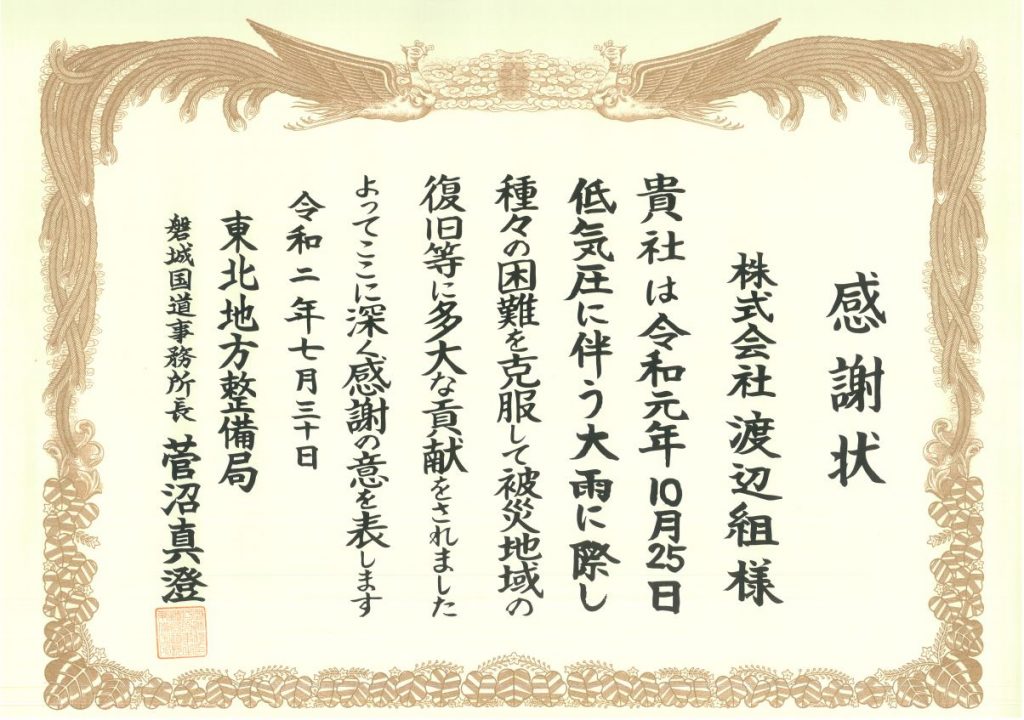 感謝状
株式会社 渡辺組 様
貴社は令和元年10月25日
低気圧に伴う大雨に際し
種々の困難を克服して被災地域の
復旧等に多大な貢献をされました
よってここに深く感謝の意を表します
令和二年七月三十日
東北地方整備局
磐城国道事務所長 菅沼真澄